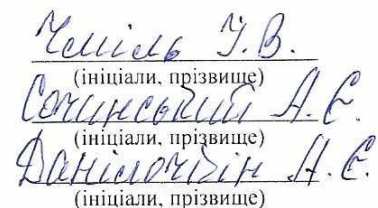 Чміль У.В.
(ініціали, прізвище)
Сочинський А.Є.
(ініціали, прізвище)
Данілочкін А.Є.
(ініціали, прізвище)